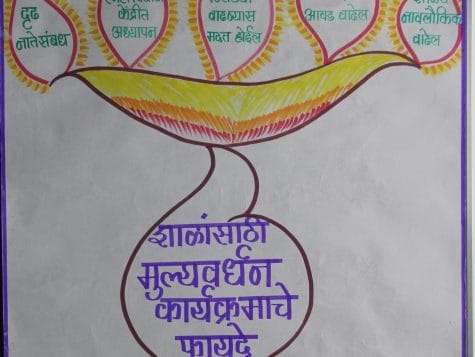 दृढ
नातेसंबंध
केंद्रीत
अध्यापन
वाढव्यास
मदत होईल
आवड वाढेल
नावलौकिक
वाढेल
शाळांसाठी
मुल्यवर्धन
कार्यक्रमाचे
फायदे